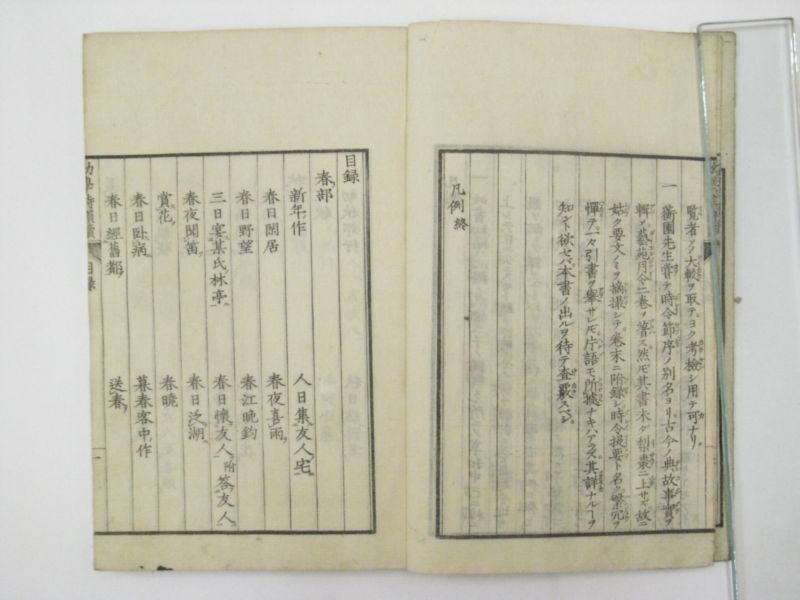 覧者ソノ大較ヲ取テヨク考検シ用テ可ナリ
一 蘅園先生嘗テ時令節序ノ別名ヨリ古今ノ典故事実ヲ
輯メ藝苑月令二巻ヲ著ス然𪜈其書未ダ梨棗ニ上サズ故ニ
姑ク要文ノミヲ摘撮シテ巻末ニ附録シ時令提要ト名ク繁冗ヲ
憚テ一々引書ヲ挙サレ𪜈片語モ所據ナキハアラズ其詳ナルヿヲ
知ント欲セバ本書ノ出ルヲ待テ査覈スベシ
凡例終
目録
春部
新年作
人日集友人宅
春日閑居
春夜喜雨
春日野望
春江晩釣
三日宴某氏林亭
春日懐友人 附答友人
春夜聞笛
春日泛湖
賞花
春暁
春日臥病
暮春客中作
春日經舊都
送春
幼學詩韻
目録
一